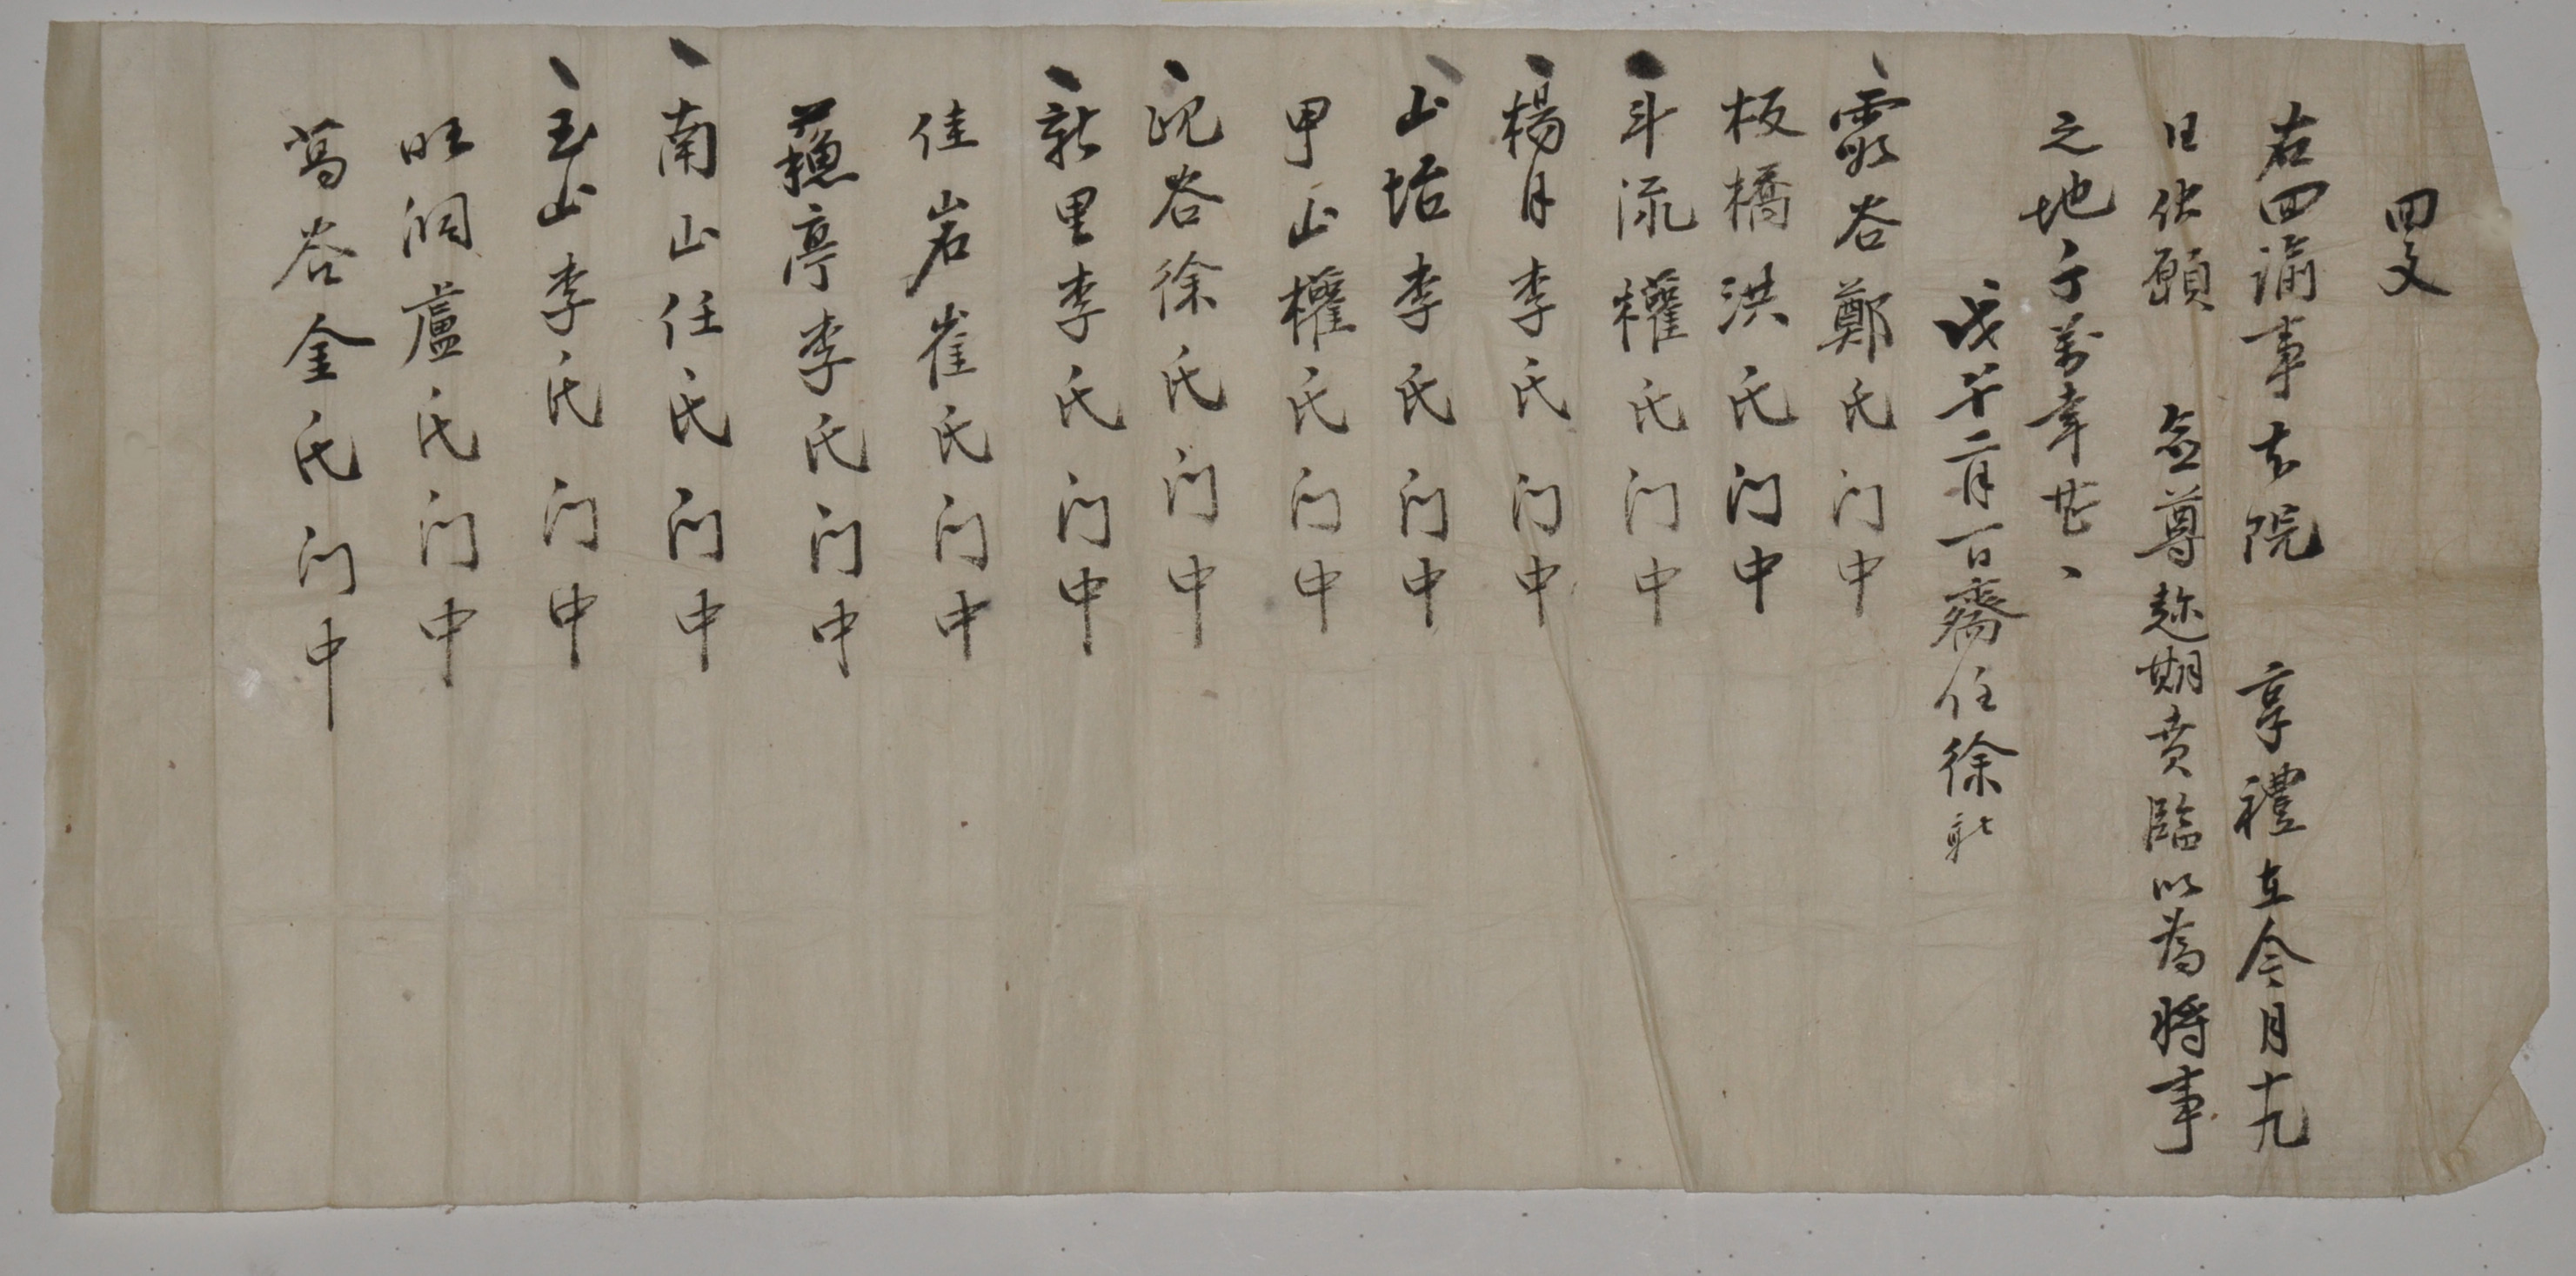 回文
右回諭事本院 享禮在今月十九
日伏願 僉尊趁期賁臨以爲將事
之地千萬幸甚、
戊午二月一日齋任徐
霞谷鄭氏门中
板橋洪氏门中
斗流權氏门中
楊月李氏门中
山坮李氏门中
甲山權氏门中
谷徐氏门中
新里李氏门中
佳岩崔氏门中
亭李氏门中
南山任氏门中
玉山李氏门中
旺洞盧氏门中
葛谷金氏门中